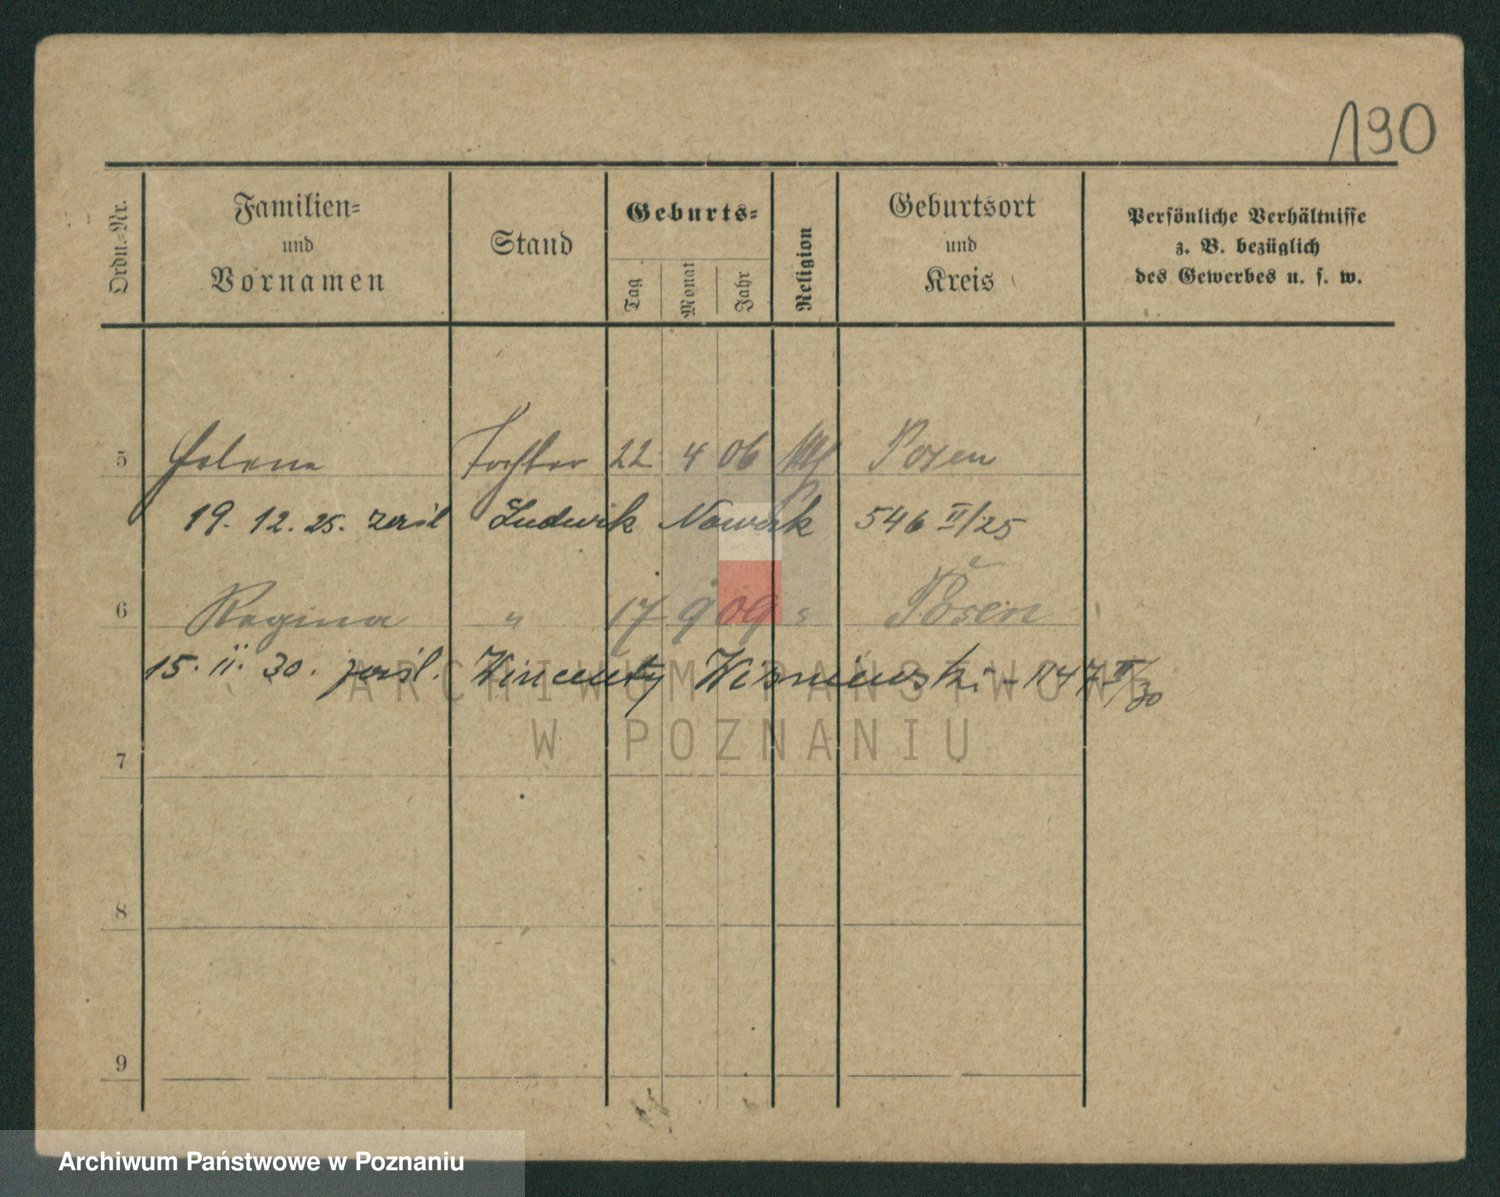 190
Ordn.-Nr. Familien- und Vornamen Stand Geburts- Tag Monat Jahr Religion Geburtsort und Kreis Persönliche Verhältnisse z. B. bezüglich des Gewerbes u. s. w.
5 Helene Tochter 22 4 06 Posen
19. 12. 25. Ludwik Nowak 546 II/25
6 Regina " 17 9 09 Posen
15. 11. 30. Wincenty Wiśniewski - 1147 II/30
7
8
9
ARCHIWUM PAŃSTWOWE
W POZNANIU
Archiwum Państwowe w Poznaniu